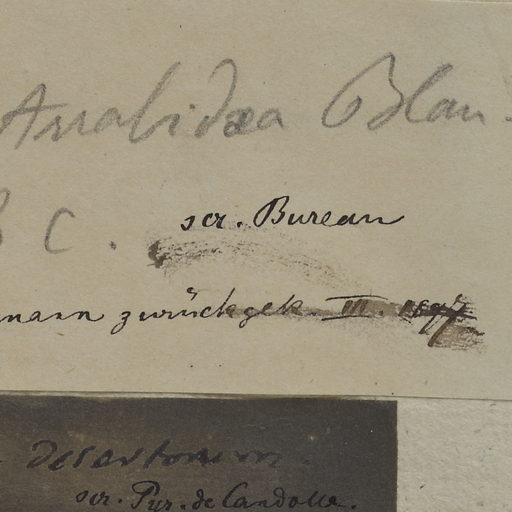 Arrabidæa Blan-
B C.
scr. Bureau
mann zurückgek. III. 1897
desertorum.
scr. Pyr. de Candolle.